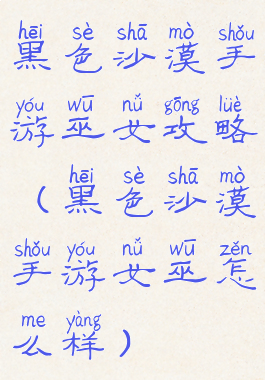 hēi sè shā mò shǒu
黑色沙漠手
yóu wū nǚ gōng lüè
游巫女攻略
hēi sè shā mò
（黑色沙漠
shǒu yóu nǚ wū zěn
手游女巫怎
me yàng
么样）